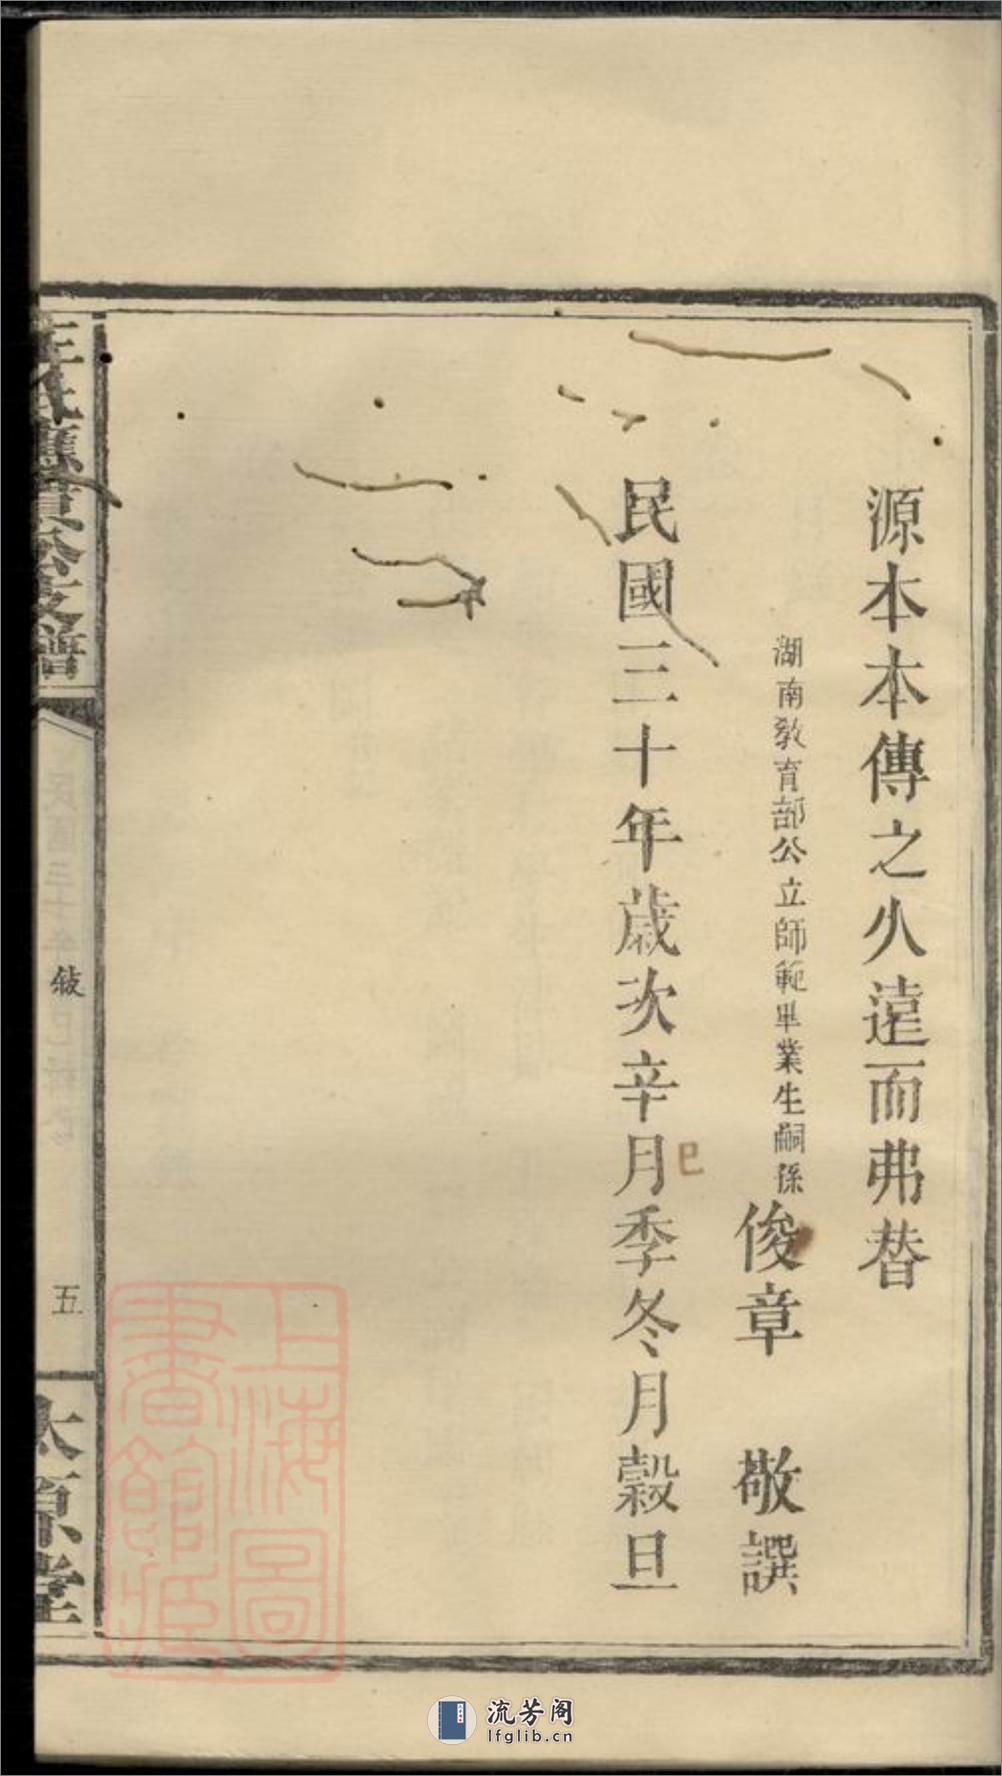 源本本傳之久遠而弗替
湖南敎育部公立師範畢業生嗣孫 俊章 敬譔
民國三十年歲次辛月季冬月穀旦
巳
王氏應貴公支譜
敍
五
太原堂
上海圖書館藏
流芳阁
lfglib.cn